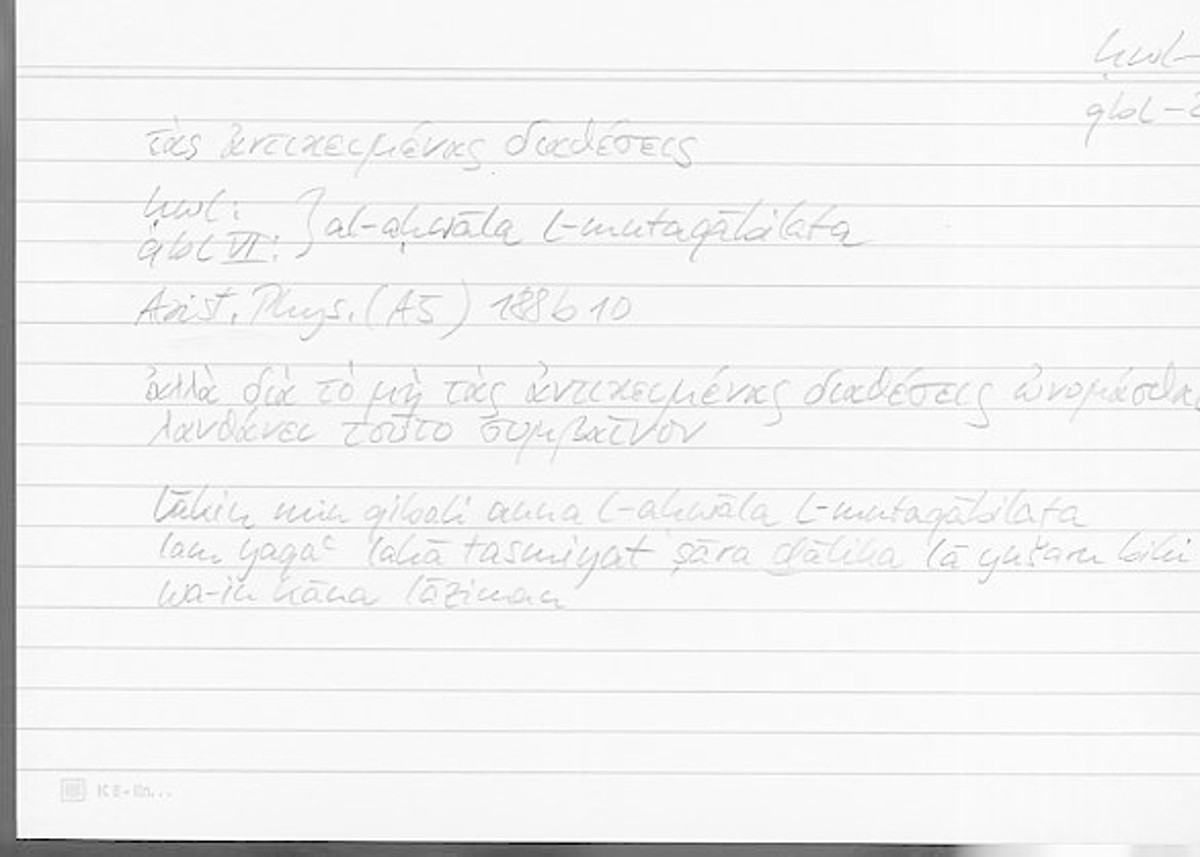 ḥwl-
qbl-
τὰς ἀντικειμένας διαθέσεις
ḥwl:
qbl VI: } al-aḥwāla l-mutaqābilata
Arist. Phys. (A5) 188b10
ἀλλὰ διὰ τὸ μὴ τὰς ἀντικειμένας διαθέσεις ὠνομάσθαι
λανθάνει τοῦτο συμβαῖνον
lākin min qibali anna l-aḥwāla l-mutaqābilata
lam yaqaʿ lahā tasmiyat ṣāra ḏālika lā yušʿaru bihi
wa-in kāna lāziman